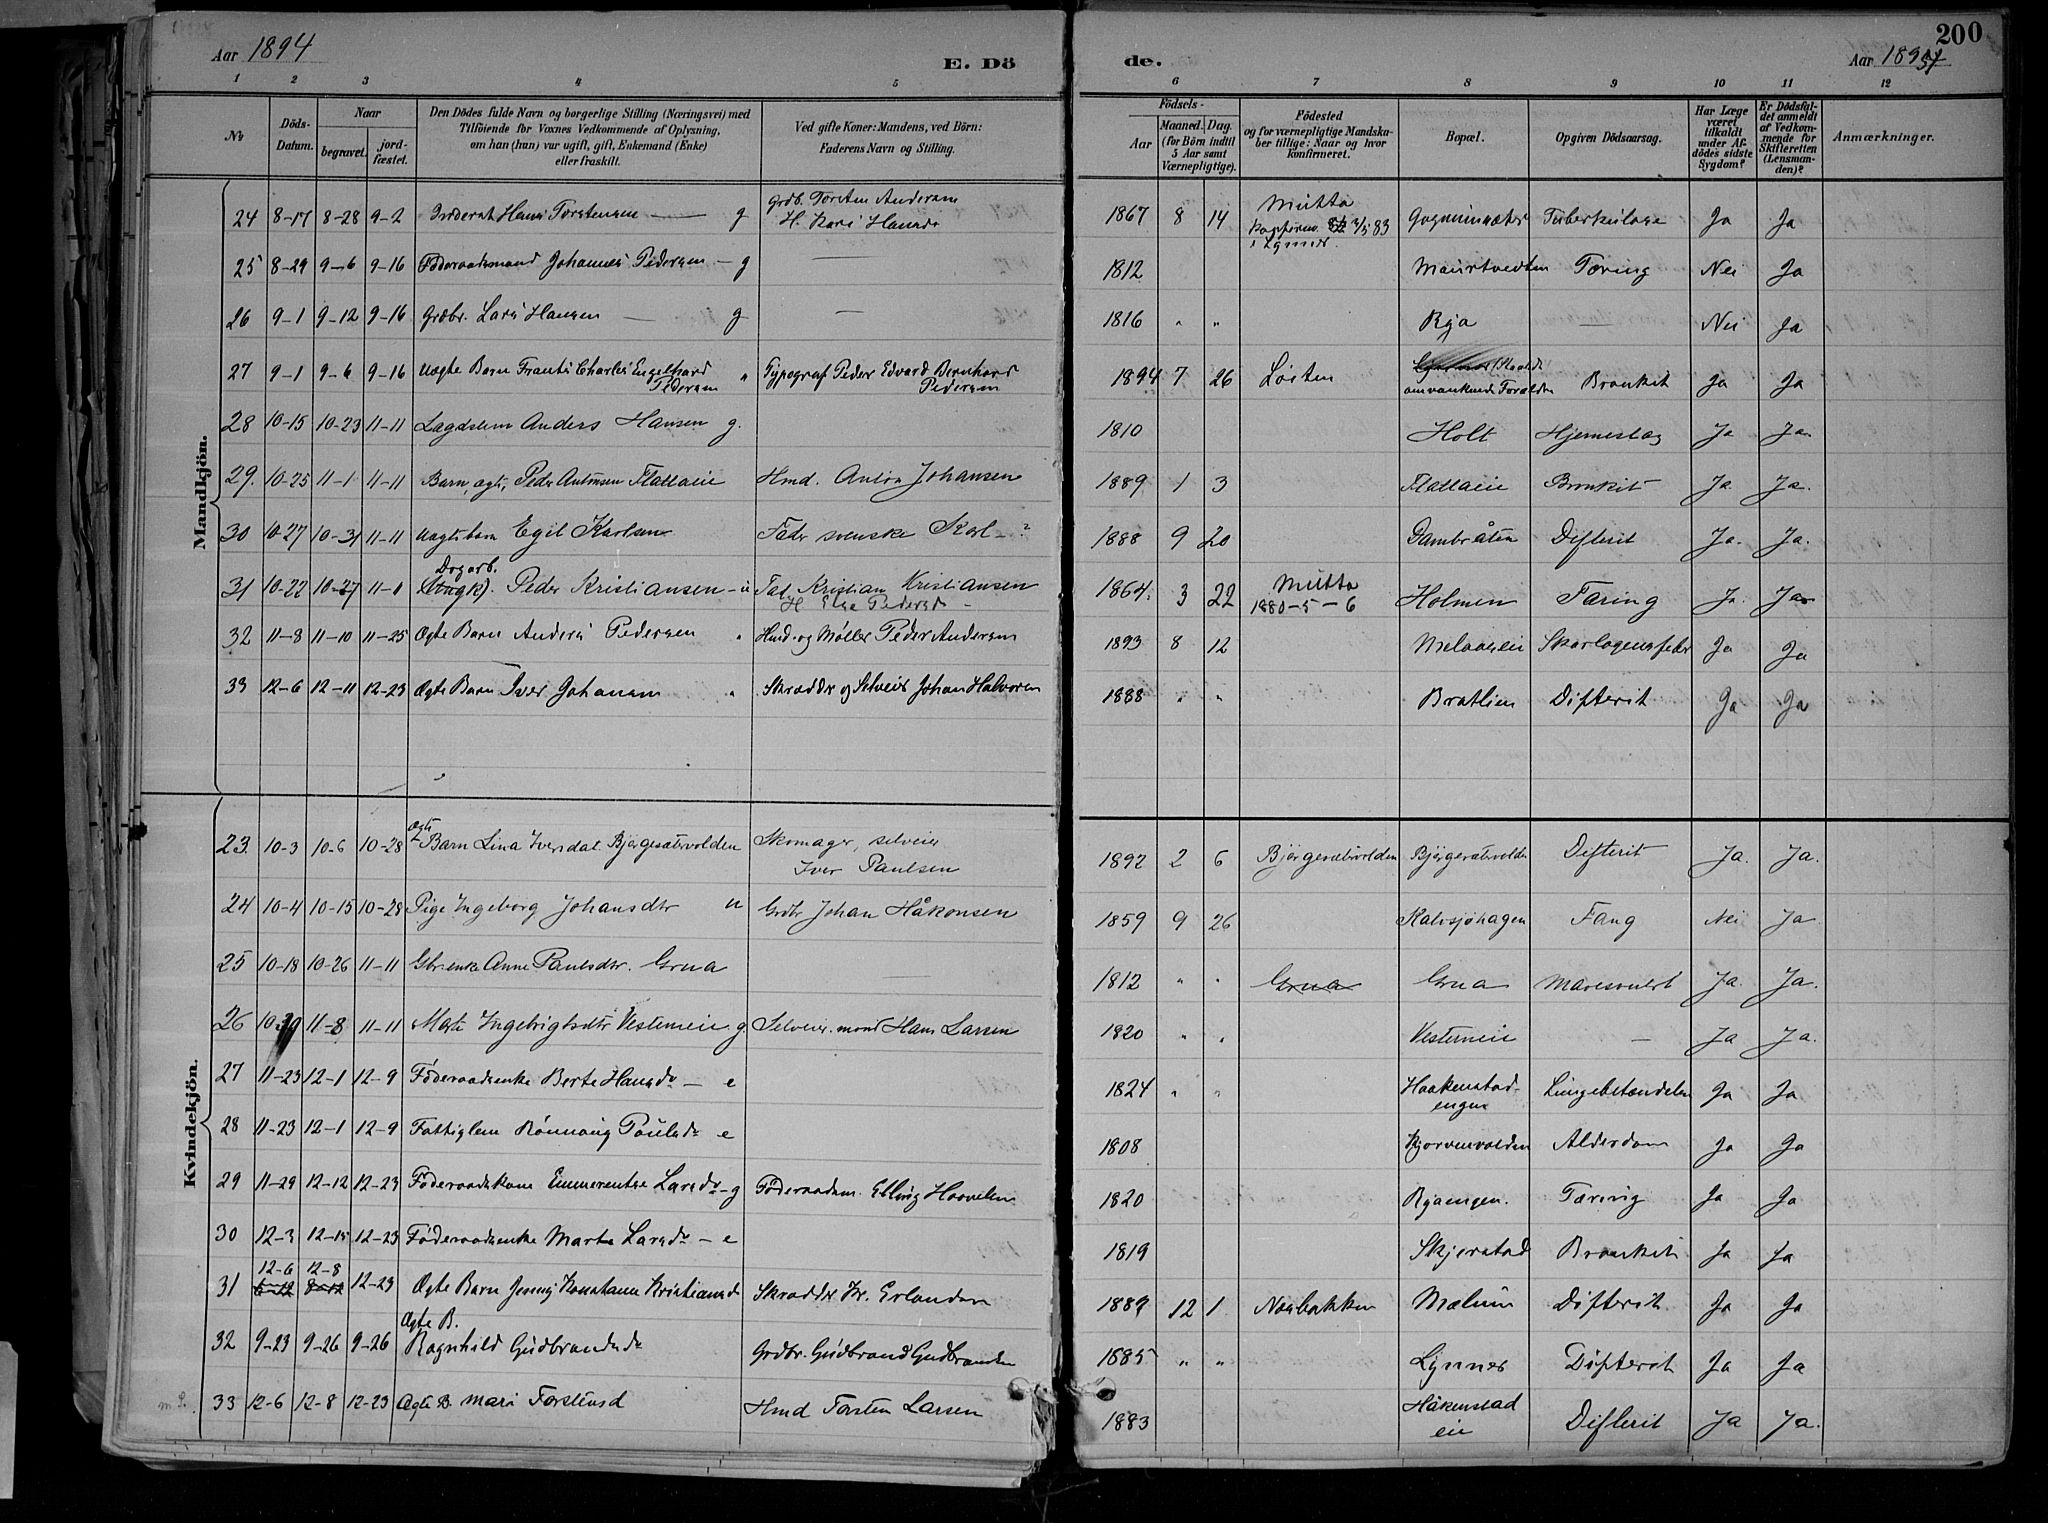 200
Aar 1894
E. Dö
de.
Aar 1894
1 2 3 4 5 6 7 8 9 10 11 12
№
Döds-Datum.
Naar
begravet.
jordfæstet.
Den Dödes fulde Navn og borgerlige Stilling (Næringsvei) med
Tilföiende for Voxnes Vedkommende af Oplysning,
om han (hun) var ugift, gift, Enkemand (Enke)
eller fraskilt.
Ved gifte Koner: Mandens, ved Börn:
Faderens Navn og Stilling.
Födsels-
Aar
Maaned. Dag.
(for Börn indtil
5 Aar samt
Værnepligtige).
Födested
og for værnepligtige Mandskaber
tillige: Naar og hvor
konfirmeret.
Bopæl.
Opgiven Dödsaarsag.
Har Læge
været
tilkaldt
under Afdödes
sidste
Sygdom?
Er Dödsfaldet
anmeldt
af Vedkommende
for
Skifteretten
(Lensmanden)?
Anmærkninger.
Mandkjön.
24 8-17 8-28 9-2 Hans Torstensen — g Grdb. Torsten Andersen H. Kari Hansdr 1867 8 14 Mutta 83 i Lynner Tuberkulose Ja Ja
25 8-29 9-6 9-16 Föderaadsmand Johannes Pedersen — g — 1812 Tæring Nei Ja
26 9-1 9-12 9-16 Grdbr. Lars Hansen — g — 1816 " " Rya — Nei Ja
27 9-1 9-6 9-16 Uægte Barn Frants Charles Engelhard Pedersen " Typograf Peder Edvard Bernhard Pedersen 1894 7 26 Løiten omvankende Forældre Bronkit Ja Ja
28 10-15 10-23 11-11 Lagdslem Anders Hansen g. 1810 Holt Hjerneslag Ja Ja
29. 10-25 11-1 11-11 Barn, ægte, Peder Antonsen Flattaeie Hmd. Anton Johansen 1889 1 3 Flattaeie Bronkit Ja Ja.
30 10-27 10-31 11-11 Uægte barn Egil Karlsen Fader svenske Karl — ? 1888 9 20 Gambråten Difterit Ja. Ja.
31 10-22 10-27 11-1 Dagarb. Peder Kristiansen — u Fat. Kristian Kristiansen H Else Pedersd — 1864. 3 22 Mutta 1880-5-6 Holmen Tæring Ja. Ja
32 11-8 11-10 11-25 Ægte Barn Anders Pedersen " Hmd. og Møller Peder Andersen 1893 8 12 Melaaseie Skarlagensfeber Ja Ja
33 12-6 12-11 12-23 Ægte Barn Iver Johansen " Skrædder og Selveier Johan Halvorsen 1888 " " Bratlien Difterit Ja Ja
Kvindekjön.
23. 10-3 10-6 10-28 Ægte Barn Lina Iversdat. Bjørgesætervolden Skomager, selveier Iver Paulsen 1892 2 6 Bjørgesætervolden Bjørgesætervolden Difterit Ja. Ja.
24 10-4 10-15 10-28 Pige Ingeborg Johansdtr u Grdbr Johan Håkonsen 1859 9 26 Kalvsjøhagen Tæng Nei Ja
25 10-18 10-26 11-11 Gbr.enke Anne Paulsdtr. Grua — 1812 " " Grua Grua Ja. Ja.
26 10-29 11-8 11-11 Marte Ingebrigtsdtr Vesterneie g. Selveier.mand Hans Larsen 1820 " " Vesterneie — Ja Ja.
27 11-23 12-1 12-9 Föderaadsenke Berte Hansdr — e 1824 " " Haakenstadengen Lungebetændelse Ja Ja
28 11-23 12-1 12-9 Fattiglem Rønnaug Paulsdr e 1808 Kjorvenvolden Alderdom Ja Ja
29 11-29 12-12 12-23 Föderaadskone Emmerentse Larsdr — g Föderaadsm. Elling Haavelsen 1820 Ryaengen. Tæring Ja Ja
30 12-3 12-15 12-23 Föderaadsenke Marte Larsdr — e 1819 Skjerstad Bronkit Ja Ja
31 12-6 12-8 12-23 Ægte Barn Jenny Konstanse Kristiansd Skrædder Kr. Erlandsen 1889 12 1 Næsbakken Mælum Difterit Ja Ja
32 9-23 9-26 9-26 Ægte B. Ragnhild Gudbrandsdr Grdbr. Gudbrand Gudbrandsen 1885 " " Lynnes Difterit Ja Ja
33 12-6 12-8 12-23 Ægte B. Mari Torstensd Hmd Torsten Larsen 1883 Håkenstadeie Difterit Ja Ja.